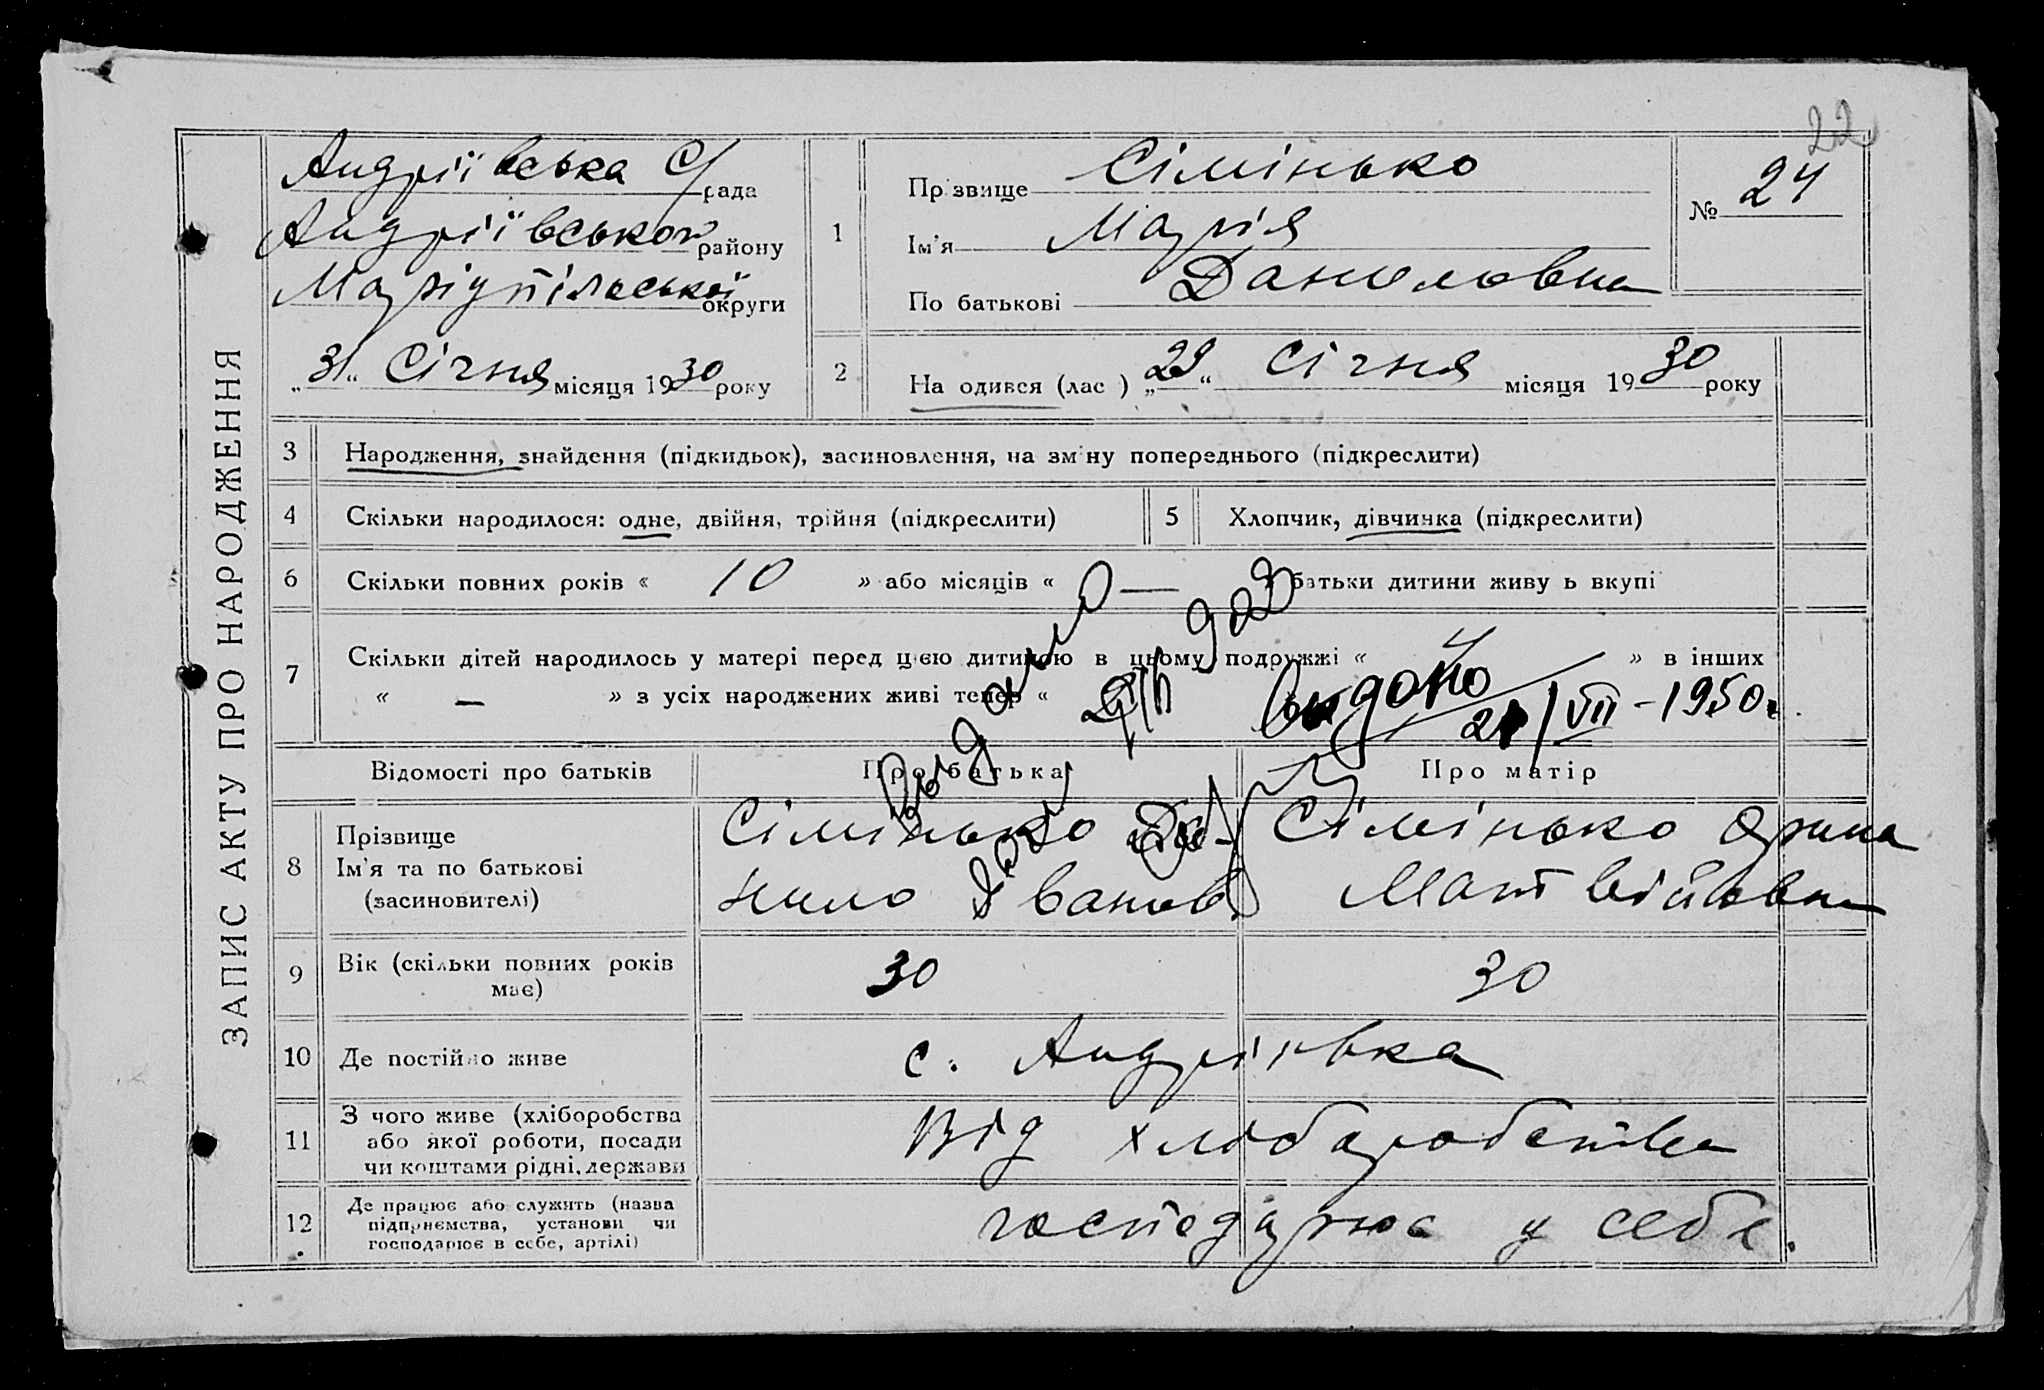 22
ЗАПИС АКТУ ПРО НАРОДЖЕННЯ
Андріївська С/рада
Андріївськог району
Маріупільської округи
„31“ Січня місяця 1930 року
1
Прізвище Сімінько
Ім'я Марія
По батькові Даниловна
№ 24
2
На одився (лас ) „29“ Січня місяця 1930 року
3 Народження, знайдення (підкидьок), засиновлення, на зміну попереднього (підкреслити)
4 Скільки народилося: одне, двійня, трійня (підкреслити)
5 Хлопчик, дівчинка (підкреслити)
6 Скільки повних років « 10 » або місяців « — батьки дитини живу ь вкупі
7 Скільки дітей народилось у матері перед цією дитиною в цьому подружжі « 4 » в інших
« — » з усіх народжених живі тепер «
Выдано
выдано
21/VII-1950г.
Відомості про батьків
Про батька
Про матір
8 Прізвище
Ім'я та по батькові
(засиновителі)
Сімінько Да-
нило Іванов.
Сімінько Орина
Матвійовна
9 Вік (скільки повних років
має)
30
30
10 Де постійно живе
с. Андріївка
11 З чого живе (хліборобства
або якої роботи, посади
чи коштами рідні, держави
Від хліборобства
12 Де працює або служить (назва
підприємства, установи чи
господарює в себе, артілі)
господарює у себе.